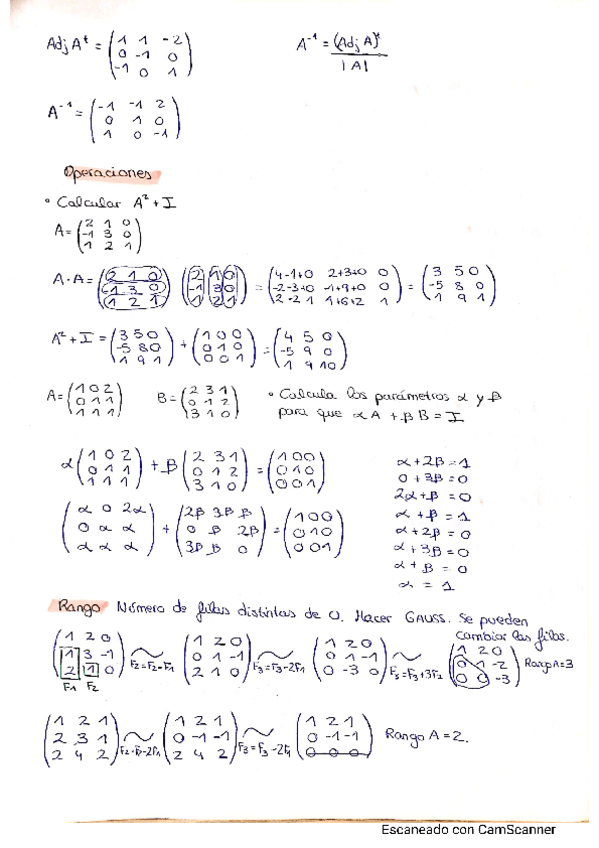 Adj Aᵗ = (1 1 -2 / 0 -1 0 / -1 0 1)   A⁻¹ = (Adj A)ᵗ / |A|
A⁻¹ = (-1 -1 2 / 0 1 0 / 1 0 -1)
Operaciones
• Calcular A² + I
A = (2 1 0 / -1 3 0 / 1 2 1)
A·A = (2 1 0 / -1 3 0 / 1 2 1) (2 1 0 / -1 3 0 / 1 2 1) = (4-1+0 2+3+0 0 / -2-3+0 -1+9+0 0 / 2-2 1 1+6+2 1) = (3 5 0 / -5 8 0 / 1 9 1)
A² + I = (3 5 0 / -5 8 0 / 1 9 1) + (1 0 0 / 0 1 0 / 0 0 1) = (4 5 0 / -5 9 0 / 1 9 10)
A = (1 0 2 / 0 1 1 / 1 1 1)   B = (2 3 1 / 0 1 2 / 3 1 0)   • Calcula los parámetros α y β
para que α A + β B = I
α (1 0 2 / 0 1 1 / 1 1 1) + β (2 3 1 / 0 1 2 / 3 1 0) = (1 0 0 / 0 1 0 / 0 0 1)
(α 0 2α / 0 α α / α α α) + (2β 3β β / 0 β 2β / 3β β 0) = (1 0 0 / 0 1 0 / 0 0 1)
α + 2β = 1
0 + 3β = 0
2α + β = 0
α + β = 1
α + 2β = 0
α + 3β = 0
α + β = 0
α = 1
Rango Número de filas distintas de 0. Hacer GAUSS. Se pueden
cambiar las filas.
(1 2 0 / 1 3 -1 / 2 1 0) F₂=F₂-F₁ (1 2 0 / 0 1 -1 / 2 1 0) F₃=F₃-2F₁ (1 2 0 / 0 1 -1 / 0 -3 0) F₃=F₃+3F₂ (1 2 0 / 0 1 -2 / 0 0 -3) Rango A=3
F1 F2
(1 2 1 / 2 3 1 / 2 4 2) F₂=F₂-2F₁ (1 2 1 / 0 -1 -1 / 2 4 2) F₃=F₃-2F₁ (1 2 1 / 0 -1 -1 / 0 0 0) Rango A = 2.
Escaneado con CamScanner